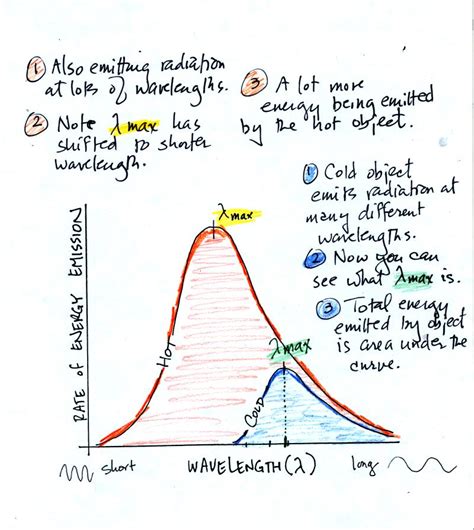 ① Also emitting radiation
at lots of wavelengths.
② Note λmax has
shifted to shorter
wavelength.
③ A lot more
energy being emitted
by the hot object.
① Cold object
emits radiation at
many different
wavelengths.
② Now you can
see what λmax is.
③ Total energy
emitted by object
is area under the
curve.
λmax
λmax
HOT
COLD
RATE OF ENERGY EMISSION
short
WAVELENGTH (λ)
long